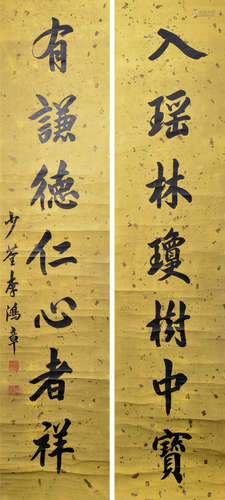 入瑶林瓊樹中寶
有謙德仁心者祥
少荃李鴻章